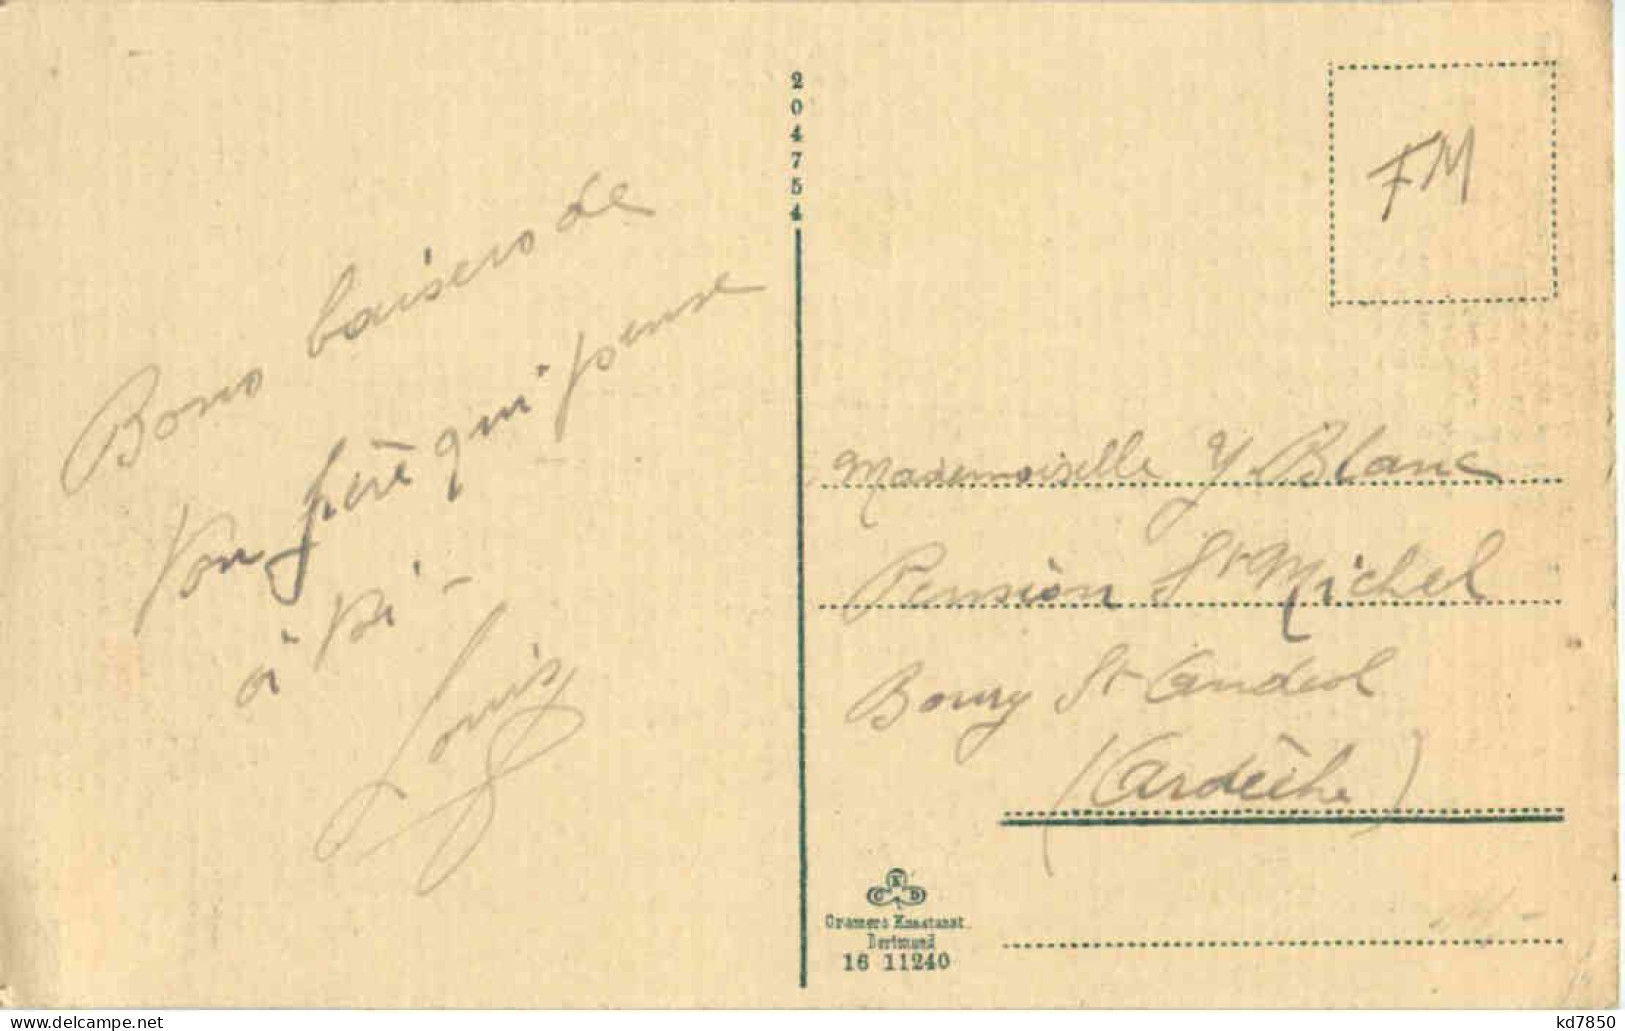 Bons baisers de
ton frère qui pense
à toi -
Louis
204754
FM
Mademoiselle Y. Blanc
Pension St Michel
Bourg St Andéol
(Ardèche)
C K D
Cramers Kunstanst.
Dortmund
16 11240
kd7850